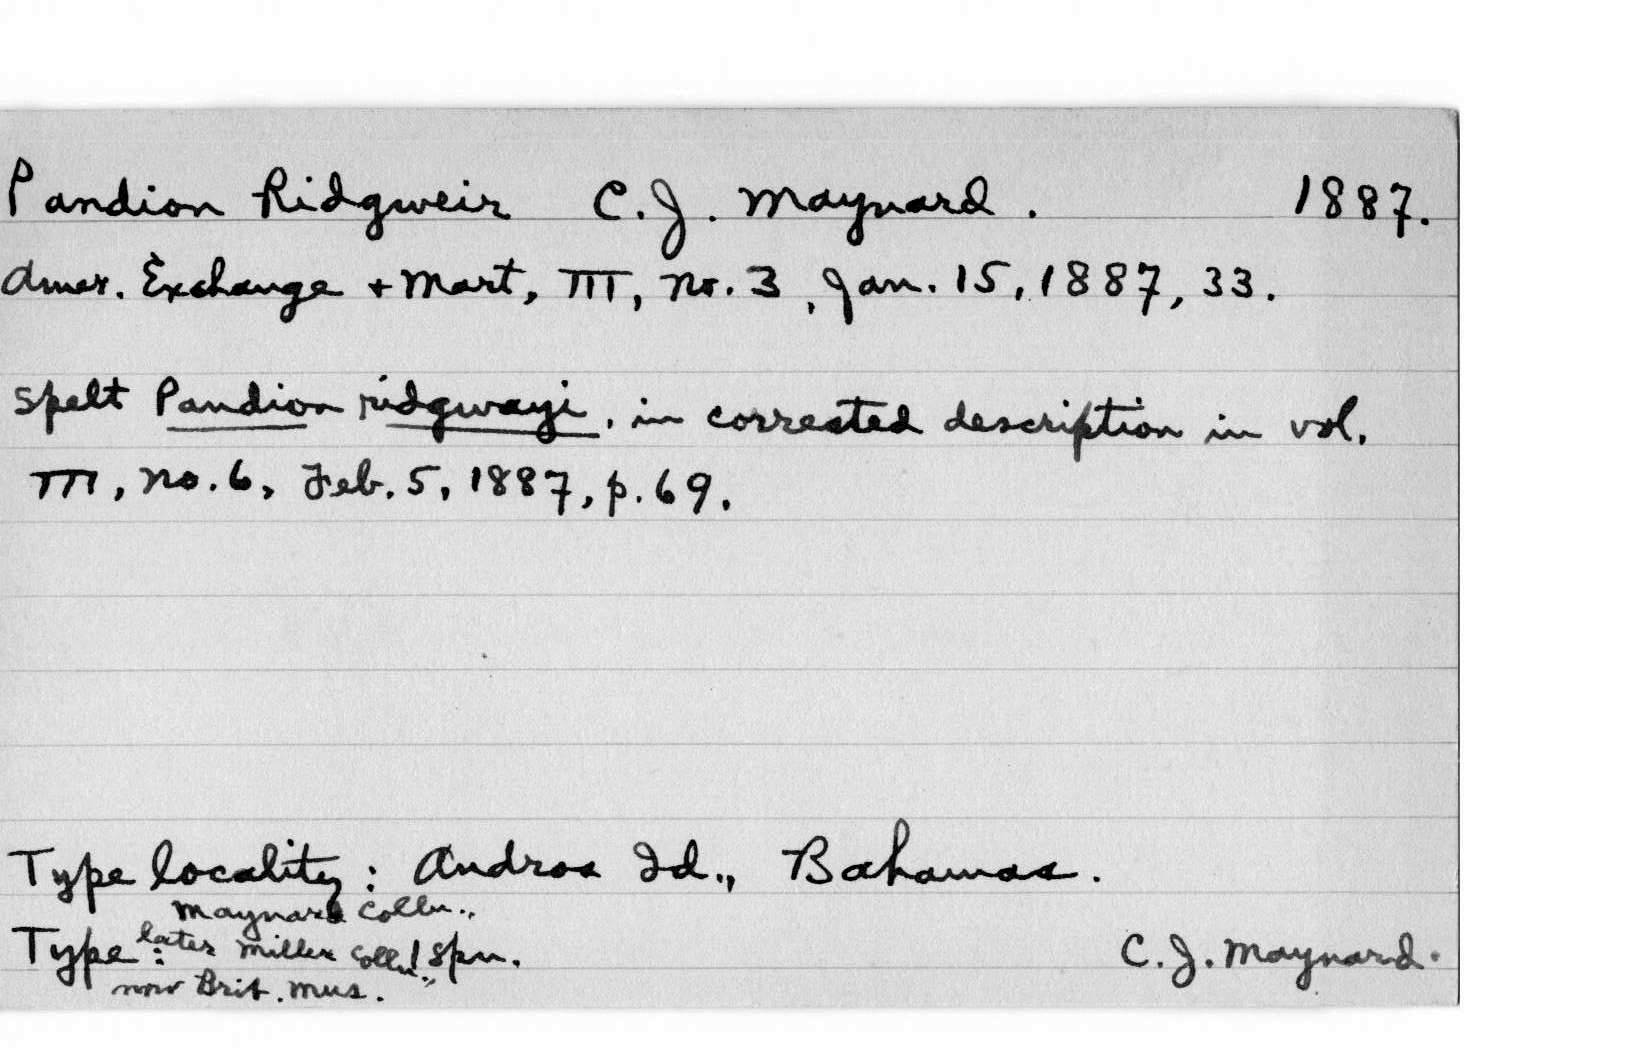 Pandion Ridgweii C. J. Maynard. 1887.
Amer. Exchange + Mart, III, no. 3, Jan. 15, 1887, 33.
Spelt Pandion ridgwayi, in corrected description in vol.
III, no. 6, Feb. 5, 1887, p. 69.
Type locality: Andros Id., Bahamas.
Maynard Colln.,
Type: later Miller Colln., 1 spn. C. J. Maynard.
now Brit. Mus.